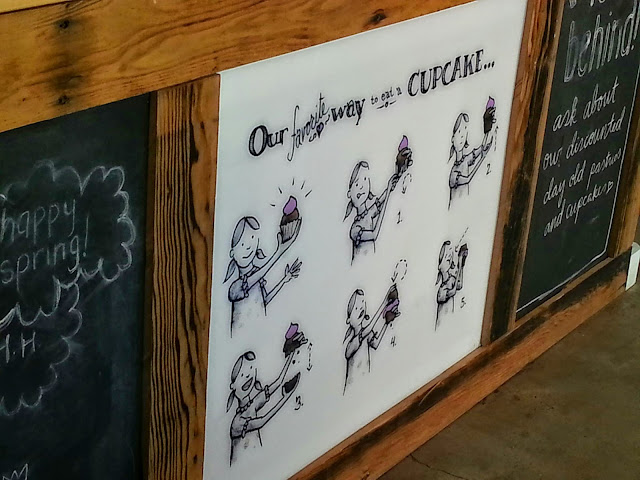 happy
spring!
Our favorite way to eat a CUPCAKE...
1.
2.
3.
4.
5.
behind!
ask about
our discounted
day old pastries
and cupcakes